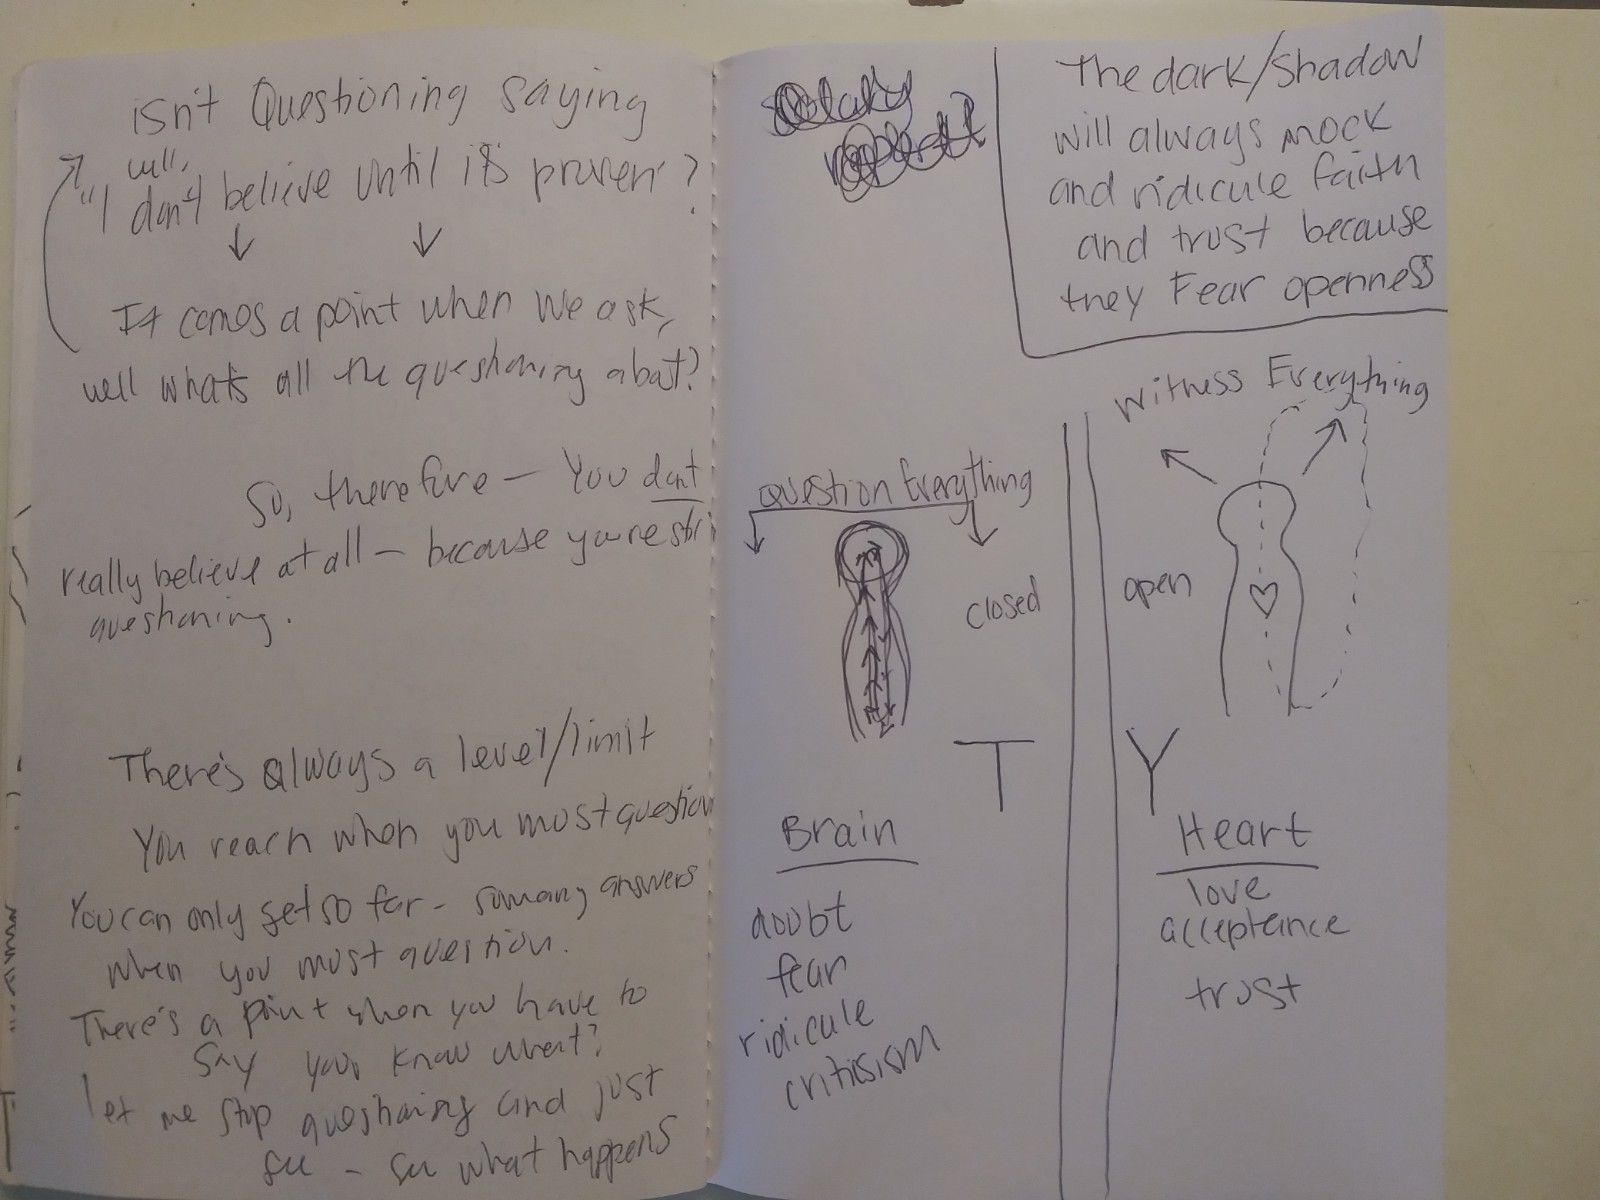 isn't Questioning saying
well,
"I don't believe until it's proven"?
It comes a point when we ask,
well whats all the questioning about?
So, therefore — You dont
really believe at all — because you're
questioning.
There's always a level/limit
You reach when you most question
You can only get so far - so many answers
when you most question.
There's a point when you have to
say you know what?
let me stop questioning and just
see - see what happens
The dark/shadow
will always mock
and ridicule faith
and trust because
they Fear openness
Question Everything
closed
T
Brain
doubt
fear
ridicule
critisism
Witness Everything
open
Y
Heart
love
acceptance
trust